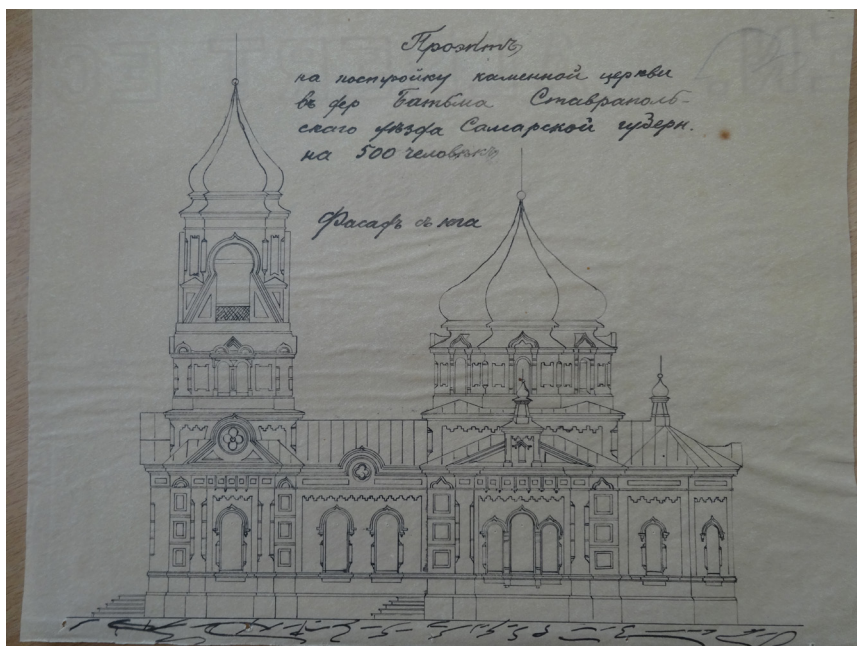 Проэктъ
на постройку каменной церкви
въ дер Батьма Ставрополь-
скаго уѣзда Самарской губерн.
на 500 человѣкъ
Фасадъ съ юга